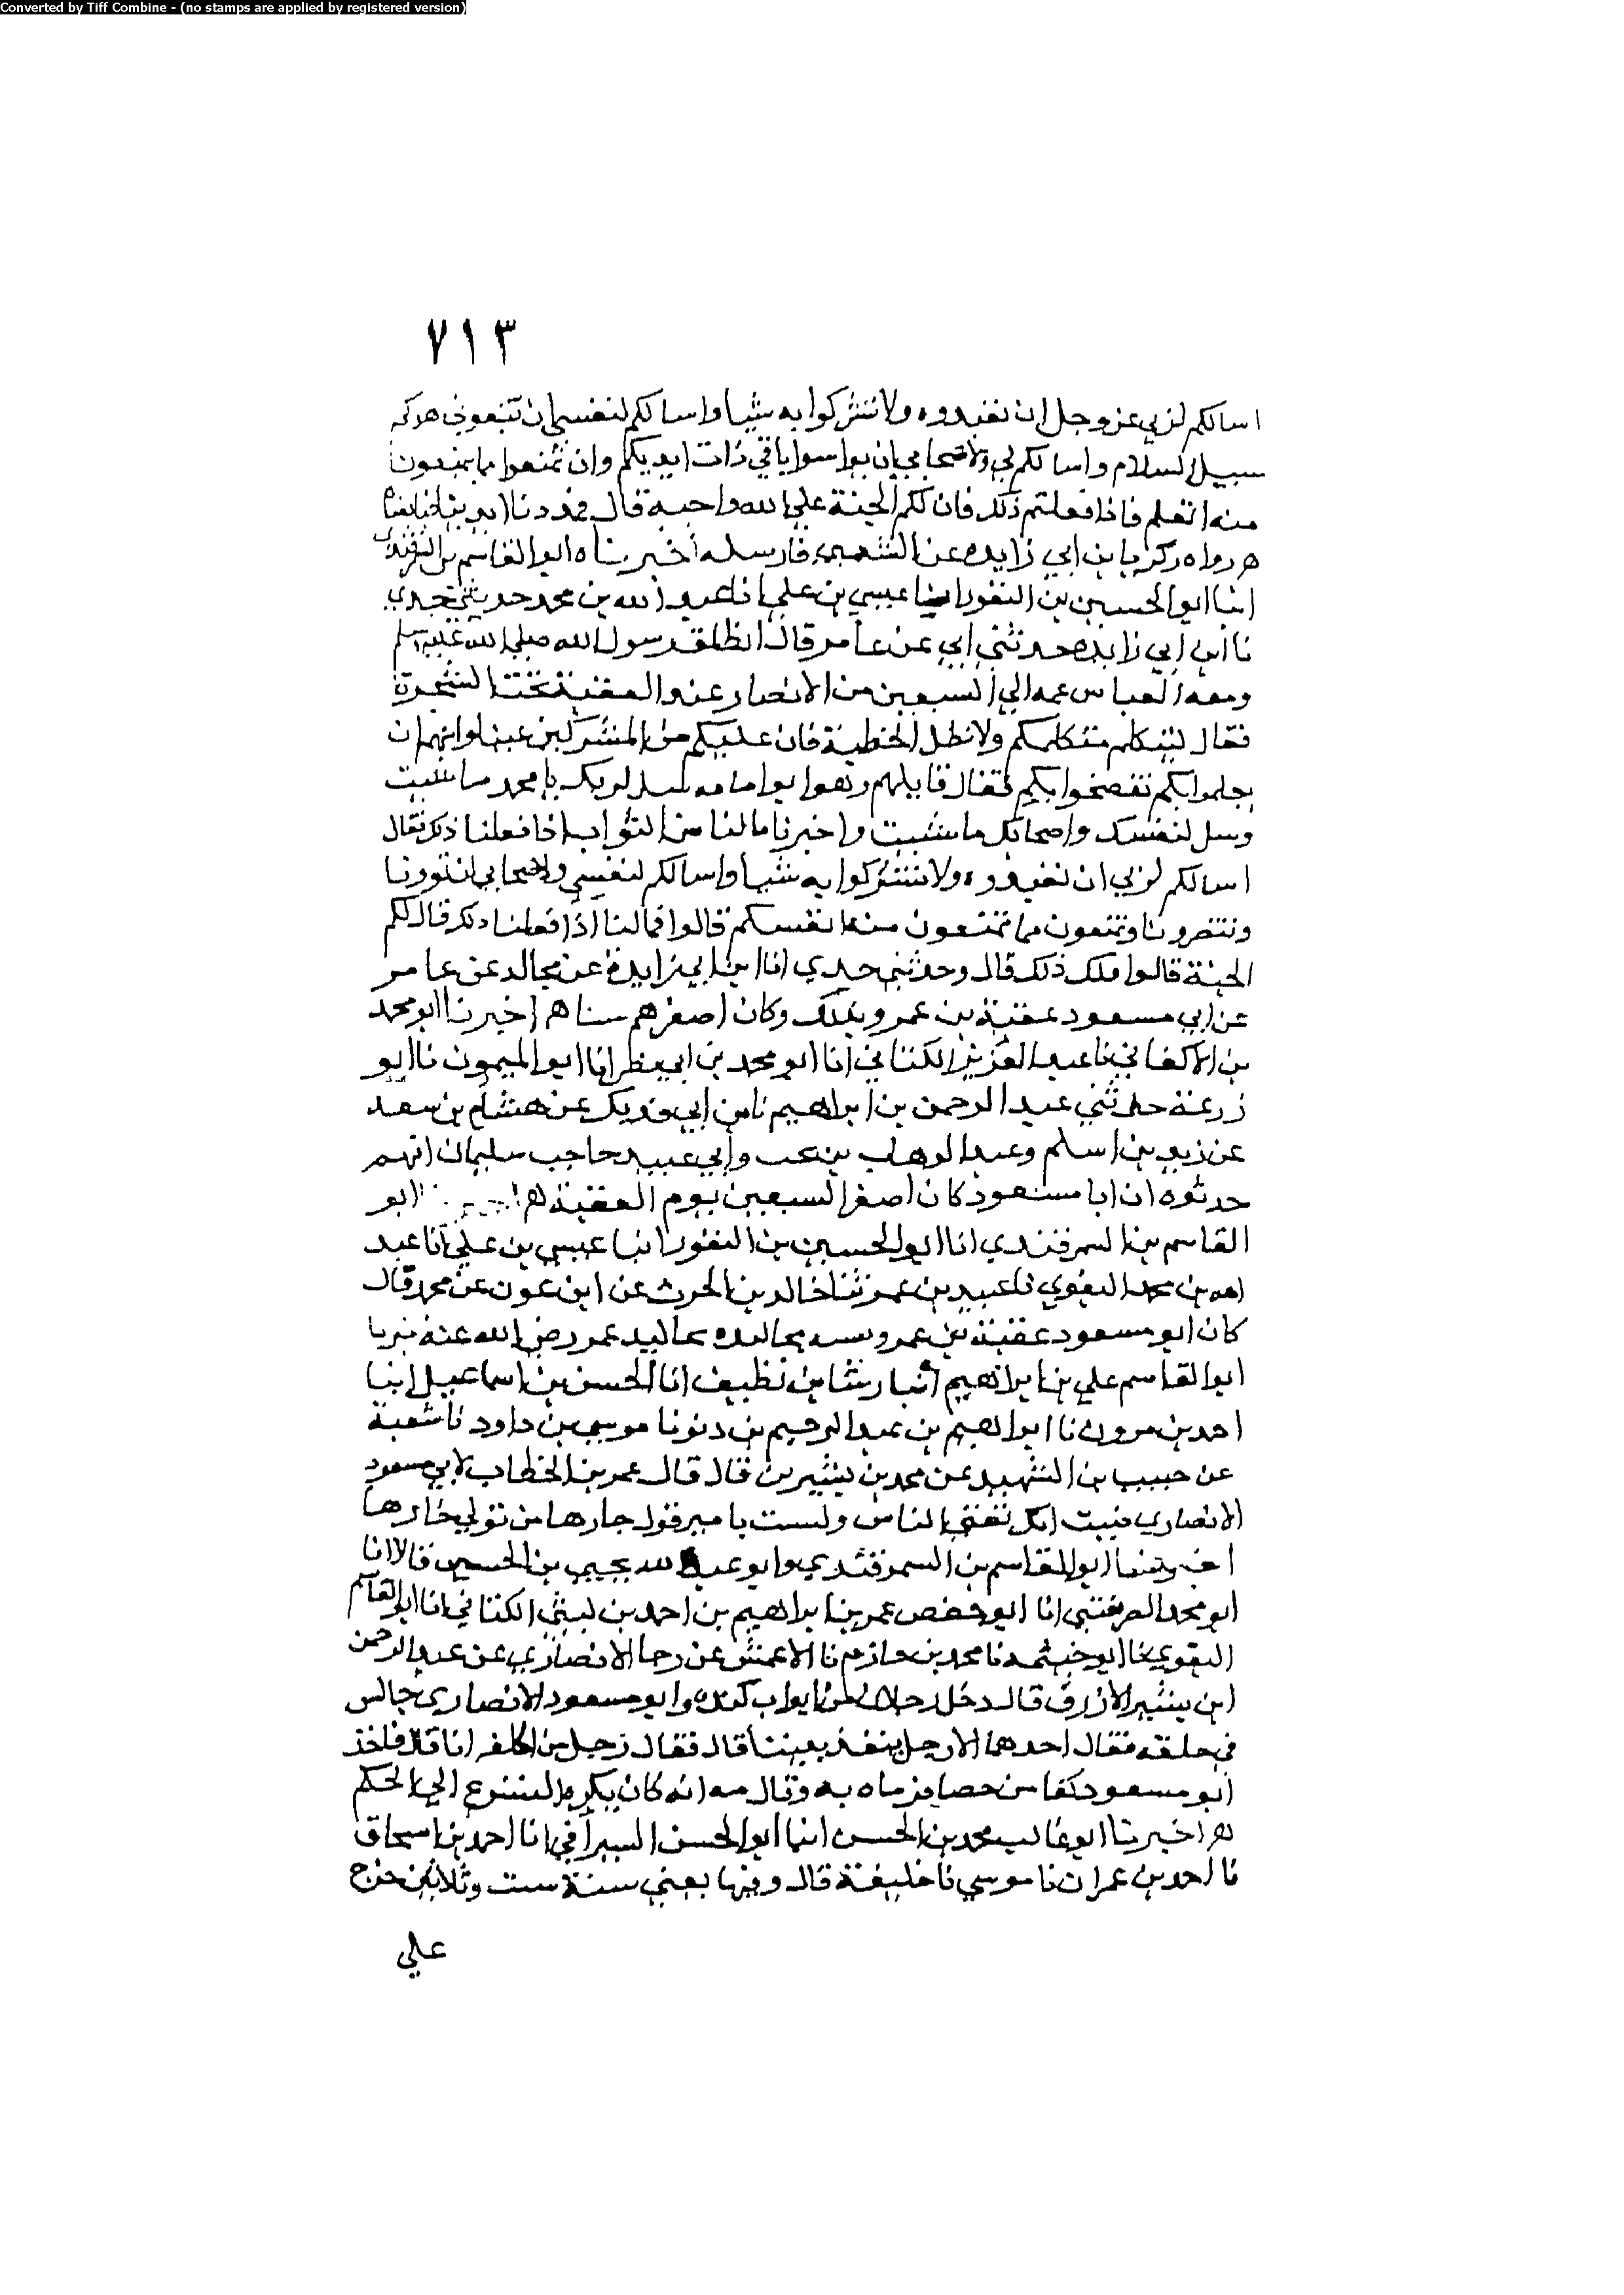 Converted by Tiff Combine - (no stamps are applied by registered version)
٧١٣
اسالكم لربي عز وجل ان تعبدوه ولا تشركوا به شيا واسالكم لنفسي ان تتبعوني
سبيل السلام واسالكم لي ولاصحابي ان يواسوا باقي ذات ايديكم وان تمنعوا مما يمنعون
منه انفسكم فاذا فعلتم ذلك فان لكم الجنة علي الله واجبة قال فمددنا ايدينا فبايعناه
ه رواه زكريا بن ابي زايده عن الشعبي فارسله أخبرناه ابوا القاسم بن السمرقندي
ابنا ابوا الحسين بن النقور ابنا عيسي بن علي انا عبد الله بن محمد حدثني جدي
نا ابن ابي زايده حدثني ابي عن عامر قال انطلق رسول الله صلي الله عليه وسلم
ومعه العباس عمه الي السبعين من الانصار عند العقبة تحت الشجرة
فقال ليتكلم متكلمكم ولا يطل الخطبة فان عليكم من المشركين عينا وانهم ان
يعلموا بكم تفضحوا بكم فقال قايلهم وهوا بوا مامه سل لربك يا محمد ما شيت
وسل لنفسك واصحابك ما شيت واخبرنا ما لنا من الثواب اذا فعلنا ذلك فقال
اسالكم لربي ان تعبدوه ولا تشركوا به شيا واسالكم لنفسي ولاصحابي ان تؤونا
وتنصرونا وتمنعون مما تمنعون منه انفسكم قالوا فما لنا اذا فعلنا ذلك قال لكم
الجنة قالوا فلك ذلك قال وحدثني جدي انا ابن ابي زايدة عن مجالد عن عامر
عن ابي مسعود عقبة بن عمرو بذلك وكان اصغرهم سنا هم اخبرنا ابو محمد
بن الاكفاني نا عبد العزيز الكتاني انا ابو محمد بن ابي نظر انا ابوا الميمون نا ابو
زرعة حدثني عبد الرحمن بن ابراهيم نا بن ابي فديك عن هشام بن سعد
عن زيد بن اسلم وعبد الوهاب بن بخت وابي عبيد حاجب سليمان انهم
حدثوه ان ابا مسعود كان اصغر السبعين يوم العقبة ابو
القاسم بن السمرقندي انا ابوا الحسين بن النقور ابنا عيسي بن علي انا عبد
الله بن محمد البغوي نا عبيد بن عمر ثنا خالد بن الحرث عن ابن عون عن محمد قال
كان ابو مسعود عقبة بن عمرو عمر رضي الله عنه
ابوا القاسم علي بن ابراهيم أنبا رشا بن نظيف انا الحسن بن اسماعيل ابنا
احمد بن مرون نا ابراهيم بن عبد الرحيم بن دنونا موسي بن داود نا شعبة
عن حبيب بن الشهيد عن محمد بن سيرين قال قال عمر بن الخطاب لابي مسعود
الانصاري نبيت انك تفتي الناس ولست بامير فول حارها من تولي قارها
ابوا القاسم بن السمرقندي وابو عبد الله يحيي بن الحسين قالا انا
ابو محمد الصريفيني انا ابو حفص عمر بن ابراهيم بن احمد بن الكتاني انا ابوا القاسم
البغوي نا ابو خيثمه نا محمد بن حازم نا الاعمش عن رجا الانصاري عن عبد الرحمن
ابن بشير الازرق قال دخل رجلان من ابواب كنده وابو مسعود الانصاري جالس
في حلقة فقال احدهما الا رجل ينفذ بيننا قال فقال رجل من الحلقه انا قال فاخذ
ابو مسعود كفا من حصا فرماه به وقال مه انه كان يكره التسرع الي الحكم
اخبرنا ابو غالب محمد بن الحسن ابنا ابوا الحسن السيرافي انا احمد بن اسحاق
نا احمد بن عمران نا موسي نا خليفة قال وفيها يعني سنة ست وثلاثين خرج
علي